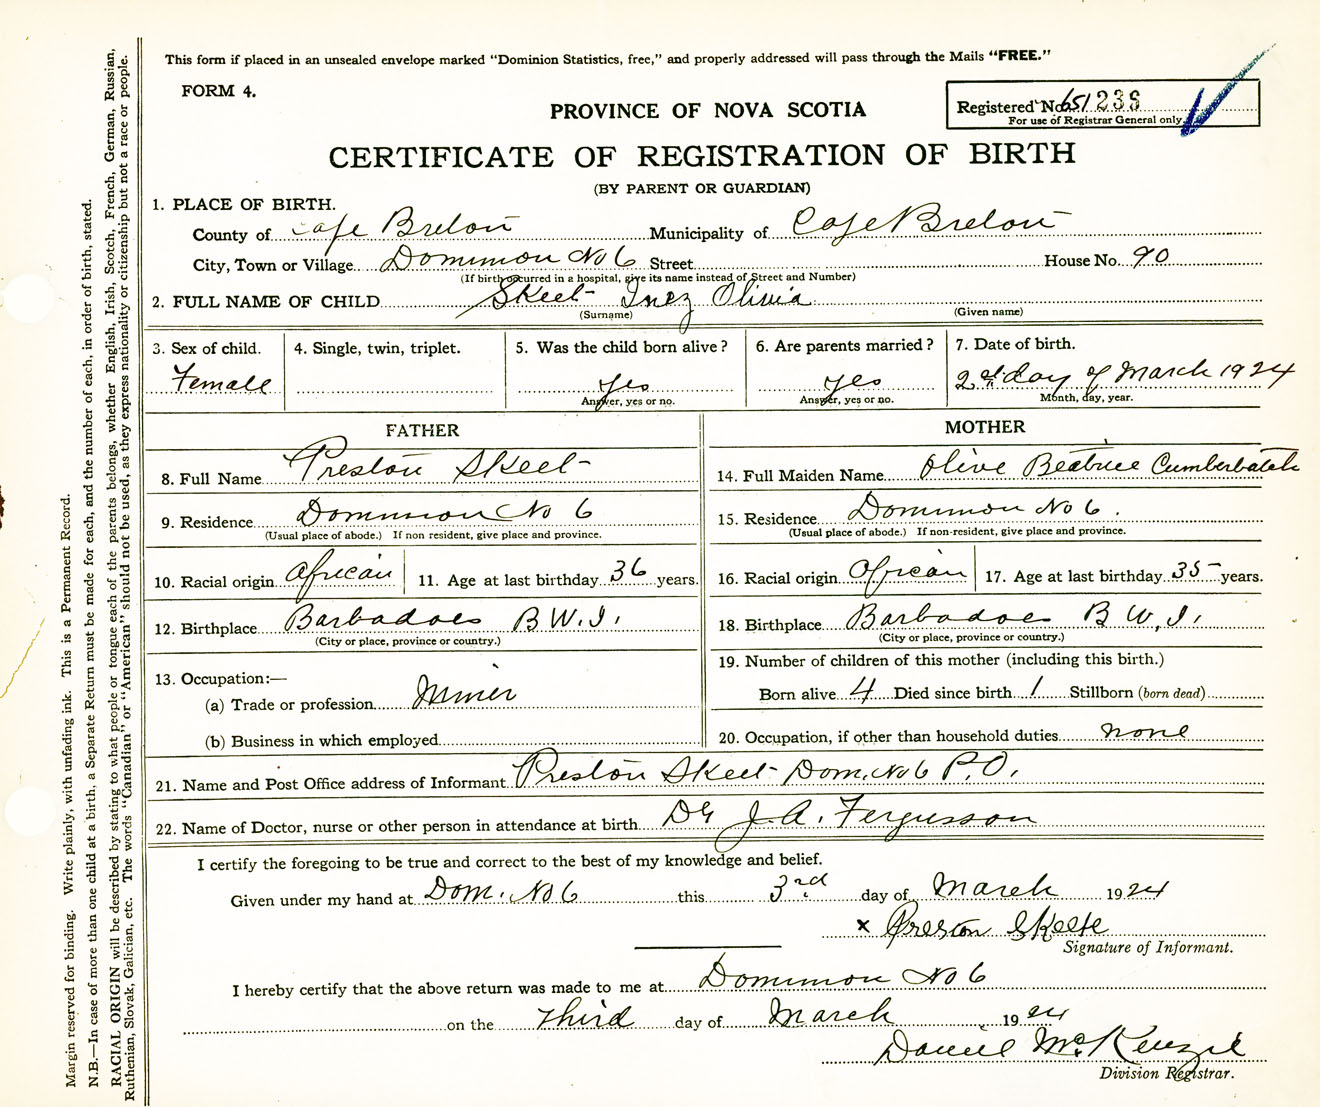 This form if placed in an unsealed envelope marked "Dominion Statistics, free," and properly addressed will pass through the Mails "FREE."
FORM 4.
PROVINCE OF NOVA SCOTIA
Registered No. 651235
For use of Registrar General only
CERTIFICATE OF REGISTRATION OF BIRTH
(BY PARENT OR GUARDIAN)
1. PLACE OF BIRTH.
County of Cape Breton Municipality of Cape Breton
City, Town or Village Dominion No 6 Street House No. 90
(If birth occurred in a hospital, give its name instead of Street and Number)
2. FULL NAME OF CHILD Skeet Inez Olivia
(Surname) (Given name)
3. Sex of child. 4. Single, twin, triplet. 5. Was the child born alive? 6. Are parents married? 7. Date of birth.
Female Yes Yes 2nd day of March 1924
Answer, yes or no. Answer, yes or no. Month, day, year.
FATHER MOTHER
8. Full Name Preston Skeet 14. Full Maiden Name Olive Beatrice Cumberbatch
9. Residence Dominion No 6 15. Residence Dominion No 6.
(Usual place of abode.) If non resident, give place and province. (Usual place of abode.) If non-resident, give place and province.
10. Racial origin African 11. Age at last birthday 36 years. 16. Racial origin African 17. Age at last birthday 35 years.
12. Birthplace Barbadoes B W. I. 18. Birthplace Barbadoes B W. I.
(City or place, province or country.) (City or place, province or country.)
19. Number of children of this mother (including this birth.)
13. Occupation:—
(a) Trade or profession Miner Born alive 4 Died since birth 1 Stillborn (born dead)
(b) Business in which employed 20. Occupation, if other than household duties none
21. Name and Post Office address of Informant Preston Skeet Dom. No 6 P.O.
22. Name of Doctor, nurse or other person in attendance at birth Dr J. A. Fergusson
I certify the foregoing to be true and correct to the best of my knowledge and belief.
Given under my hand at Dom. No 6 this 3rd day of March 1924
x Preston Skeete
Signature of Informant.
I hereby certify that the above return was made to me at Dominion No 6
on the Third day of March 1924
Daniel McKenzie
Division Registrar.
Margin reserved for binding. Write plainly, with unfading ink. This is a Permanent Record.
N.B.—In case of more than one child at a birth, a Separate Return must be made for each, and the number of each, in order of birth, stated.
RACIAL ORIGIN will be described by stating to what people or tongue each of the parents belongs, whether English, Irish, Scotch, French, German, Russian,
Ruthenian, Slovak, Galician, etc. The words "Canadian" or "American" should not be used, as they express nationality or citizenship but not a race or people.